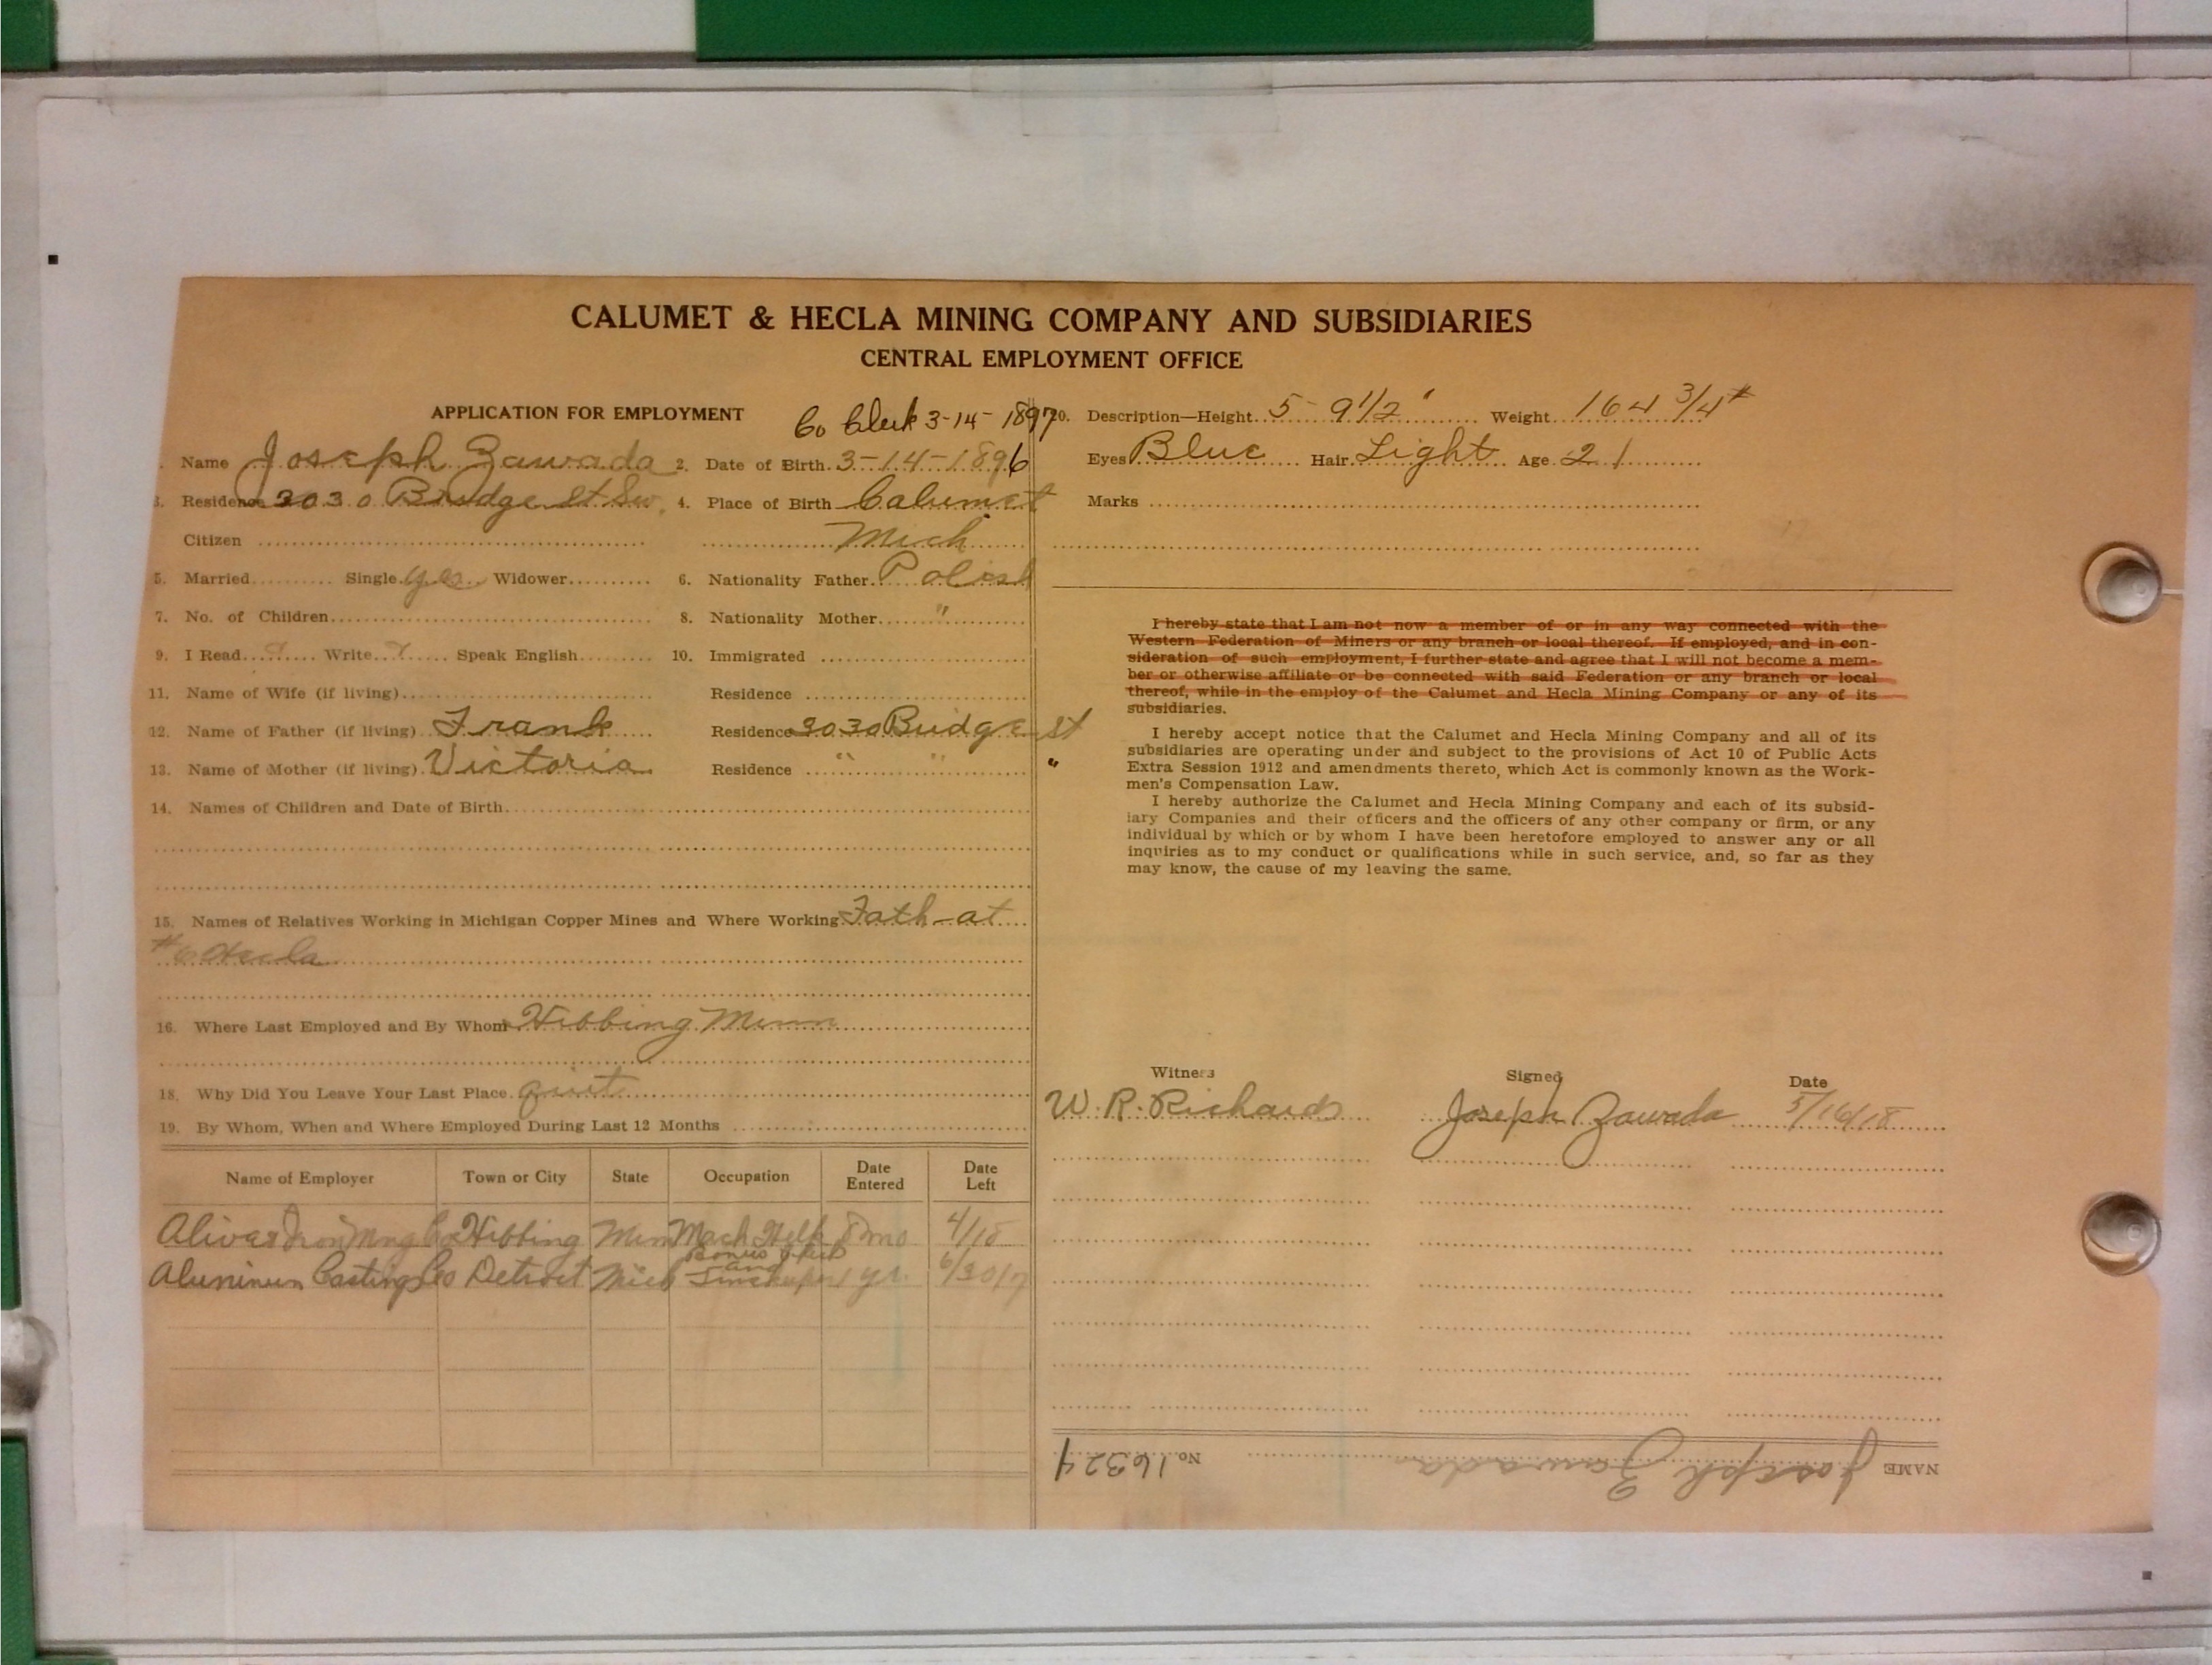 CALUMET & HECLA MINING COMPANY AND SUBSIDIARIES
CENTRAL EMPLOYMENT OFFICE
APPLICATION FOR EMPLOYMENT Co Clerk 3-14-1897
Name Joseph Zawada 2. Date of Birth 3-14-1896
3. Residence 3030 Bridge St Sw. 4. Place of Birth Calumet
Citizen Mich
5. Married Single yes Widower 6. Nationality Father Polish
7. No. of Children 8. Nationality Mother "
9. I Read Write Speak English 10. Immigrated
11. Name of Wife (if living) Residence
12. Name of Father (if living) Frank Residence 3030 Bridge St
13. Name of Mother (if living) Victoria Residence " " "
14. Names of Children and Date of Birth
15. Names of Relatives Working in Michigan Copper Mines and Where Working Fath-at
#6 Hecla
16. Where Last Employed and By Whom Hibbing Minn
18. Why Did You Leave Your Last Place quit
19. By Whom, When and Where Employed During Last 12 Months
Name of Employer Town or City State Occupation Date Entered Date Left
Iron Mng Co Hibbing Minn Mach Help 8 mo 4/18
Aluminum Castings Co Detroit Mich Bonus and Timekeeper 1 yr. 6/30/17
20. Description—Height 5 9 1/2" Weight 164 3/4 #
Eyes Blue Hair Light Age 21
Marks
I hereby state that I am not now a member of or in any way connected with the
Western Federation of Miners or any branch or local thereof. If employed, and in con-
sideration of such employment, I further state and agree that I will not become a mem-
ber or otherwise affiliate or be connected with said Federation or any branch or local
thereof, while in the employ of the Calumet and Hecla Mining Company or any of its
subsidiaries.
I hereby accept notice that the Calumet and Hecla Mining Company and all of its
subsidiaries are operating under and subject to the provisions of Act 10 of Public Acts
Extra Session 1912 and amendments thereto, which Act is commonly known as the Work-
men's Compensation Law.
I hereby authorize the Calumet and Hecla Mining Company and each of its subsid-
iary Companies and their officers and the officers of any other company or firm, or any
individual by which or by whom I have been heretofore employed to answer any or all
inquiries as to my conduct or qualifications while in such service, and, so far as they
may know, the cause of my leaving the same.
Witness Signed Date
W. R. Richards Joseph Zawada 5/16/18
NAME Joseph Zawada No. 16324